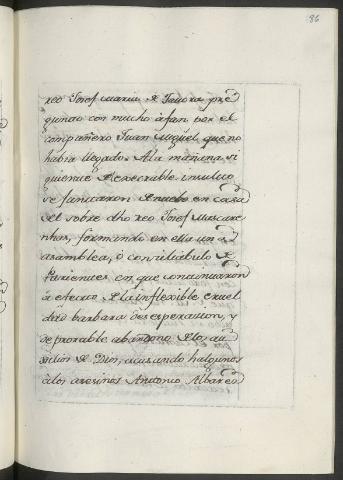 86
reo Josef Maria de Tavora pre
guntó con mucho àfan por el
compañero Juan Miguel, que no
habia llegado. Ala mañana si
guiente del execrable insulto
se juntaron de nuebo en casa
del sobre dho reo Josef Mascare
nhas, formando en ella una
asamblea, ò conciliábulo de
Parientes en que continuaron
à efecto de la inflexible cruel
dad barbara desesperacion, y
deplorable abandono de los au
xilios de Dios, acusando halgunos
àlos asesinos Antonio Albarez